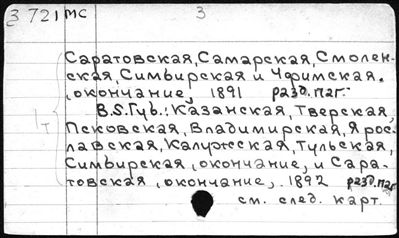 3 721 мс 3
Саратовская, Самарская, Смолен-
ская, Симбирская и Уфимская.
, окончание, 1891 разд. паг.
В.S. Губ.: Казанская, Тверская,
Псковская, Владимирская, Ярос-
т лавская, Калужская, Тульская,
Симбирская, окончание, и Сара-
товская, окончание,. 1892 разд. паг
см. след. карт.